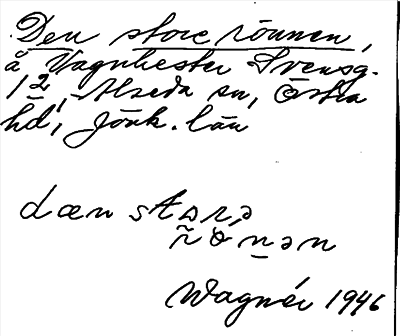 Den store rönnen,
å Vagnhester Svensg.
1 2, Alseda sn, Östra
hd, Jönk. län
dæn stɑrə
r̃önən
Wagnér 1946